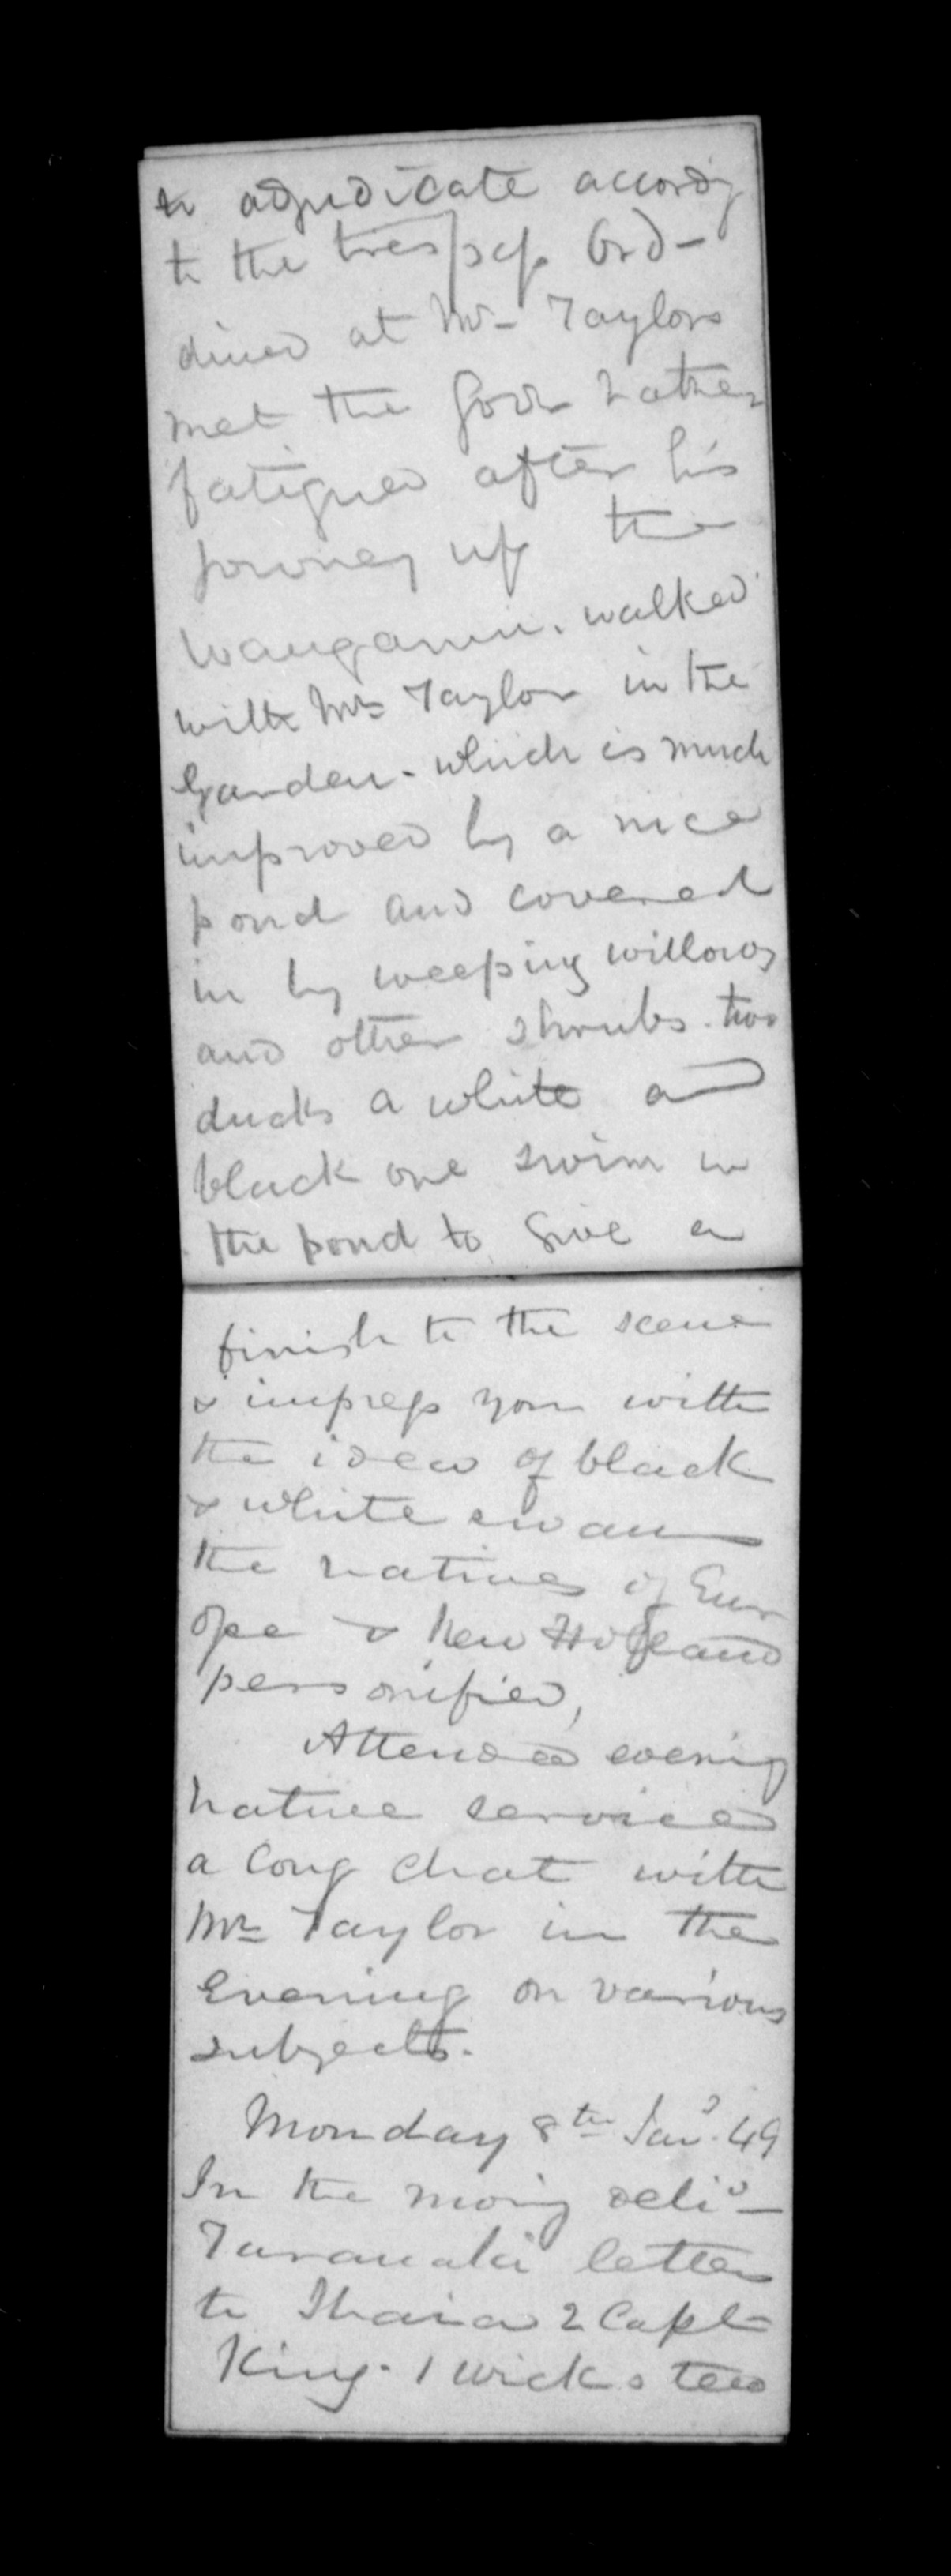 to adjudicate accordg
to the trespass Ord-
dined at Mr Taylors
met the Govr rather
fatigued after his
journey up the
Wanganui. walked
with Mrs Taylor in the
Garden - which is much
improved by a nice
pond and covered
in by weeping willows
and other shrubs. two
ducks a white and
black one swim in
the pond to give a
finish to the scene
& impress you with
the idea of black
& white swan
the natives of Eur
ope & New Holland
personified,
Attended evening
native service
a long chat with
Mr Taylor in the
Evening on various
subjects.
Monday 8th Jany. 49
In the morng delivd
Taranaki letters
to Ihaia 2 Capt
King. 1 Wicksteed